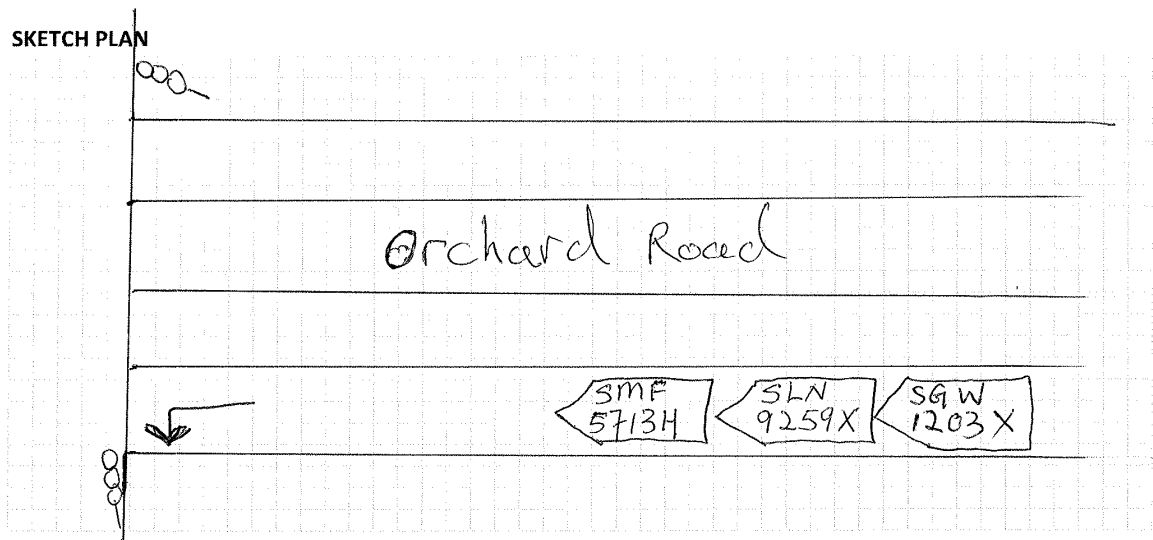 SKETCH PLAN
Orchard Road
SMF
5713H
SLN
9259X
SGW
1203X